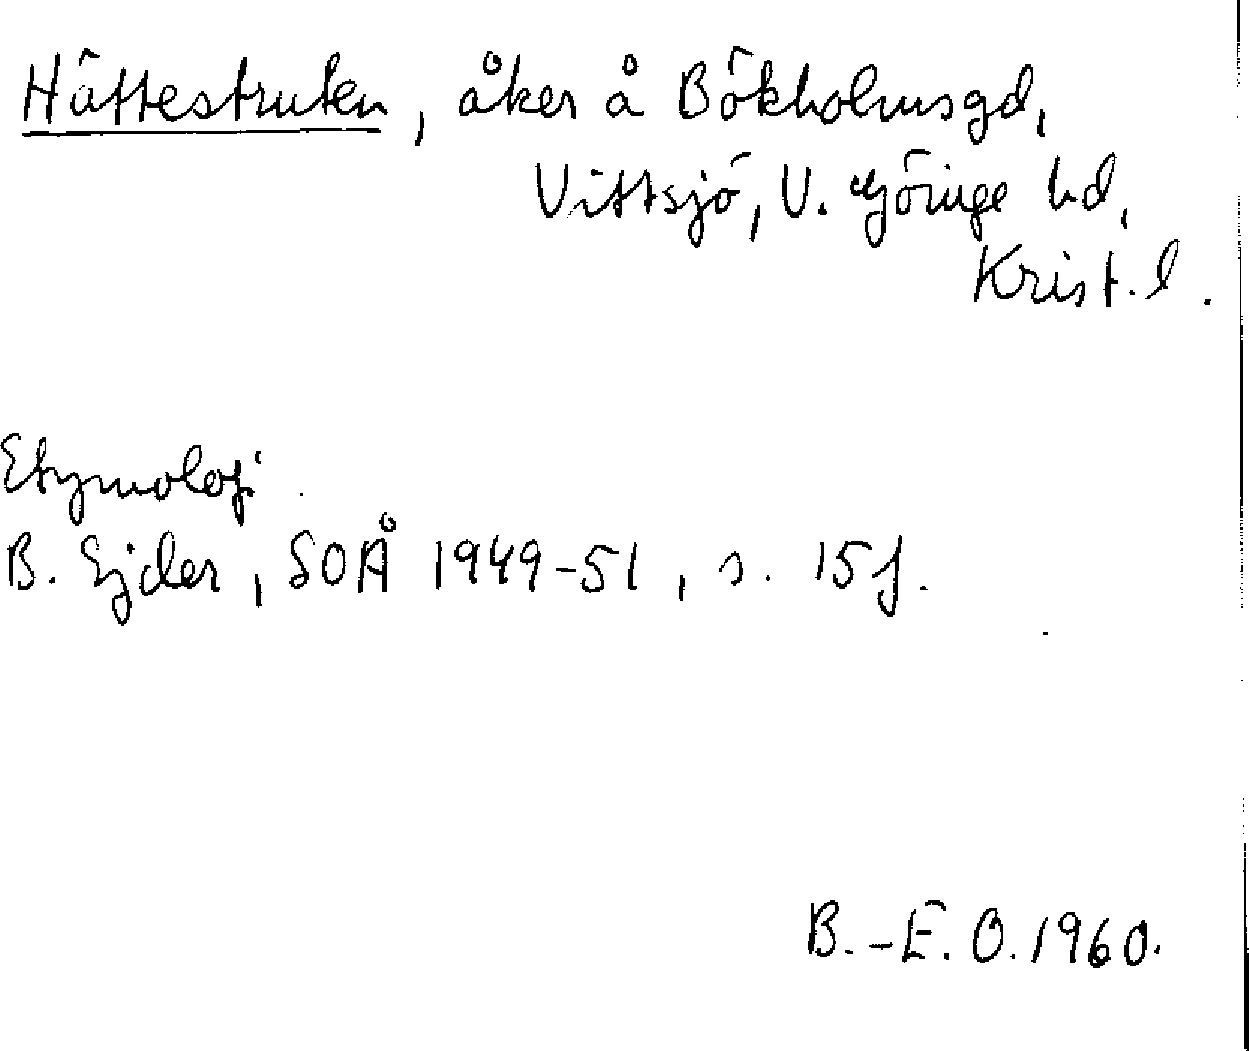 Hättestruten, åker å Bökholmsgd,
Vittsjö, V. Göinge hd,
Krist. l.
Etymologi
B. Ejder, SOÅ 1949-51, s. 15f.
B.-E. O. 1960.